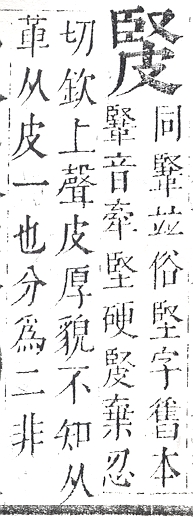 同並俗堅字舊本
音牽堅硬棄忍
切欽上聲皮厚貌不知从
革从皮一也分爲二非